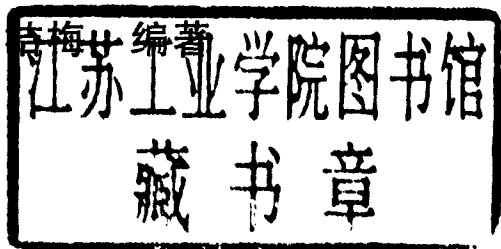 梅 编著
江苏工业学院图书馆
藏书章